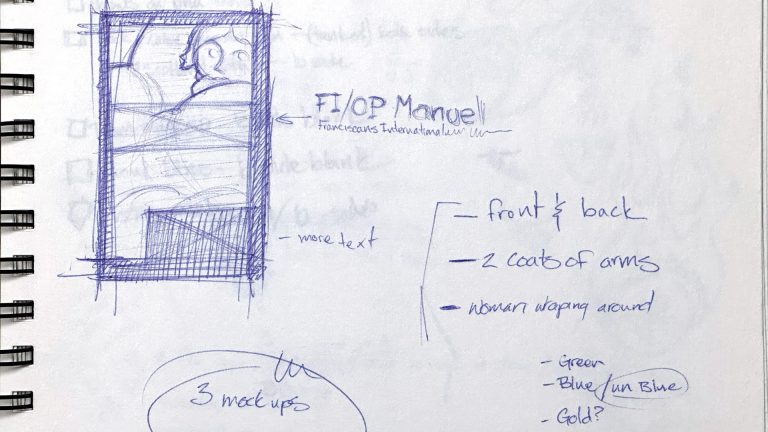 FI/OP Manuel
Franciscans International
- more text
- front & back
- 2 coats of arms
- woman wraping around
- Green
- Blue/un Blue
- Gold?
3 mock ups